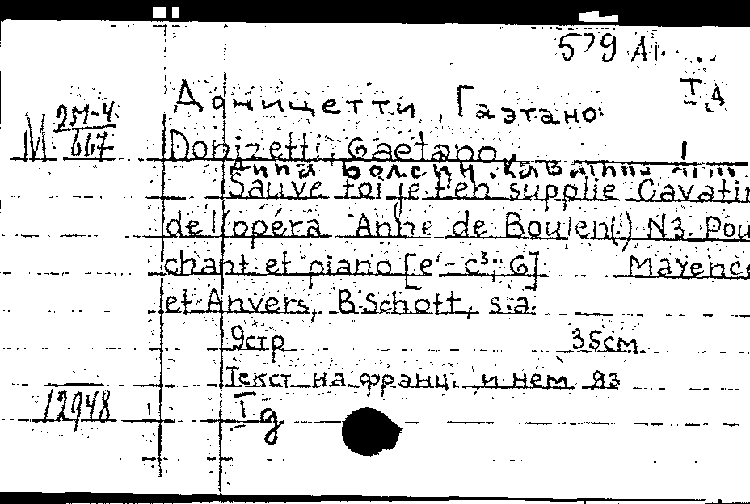 579 А1
I,д
Доницетти, Гаэтано
М 251-4
667
Donizetti, Gaetano
Анна Болейн. Каватина
Sauve toi je t'en supplie Cavatin
de l'opéra Anne de Boulen(.) N3. Pou
chant et piano [e'-c³; G] Mayence
et Anvers, B.Schott, s.a.
9стр 35см.
Текст на франц. и нем яз
12948
I д